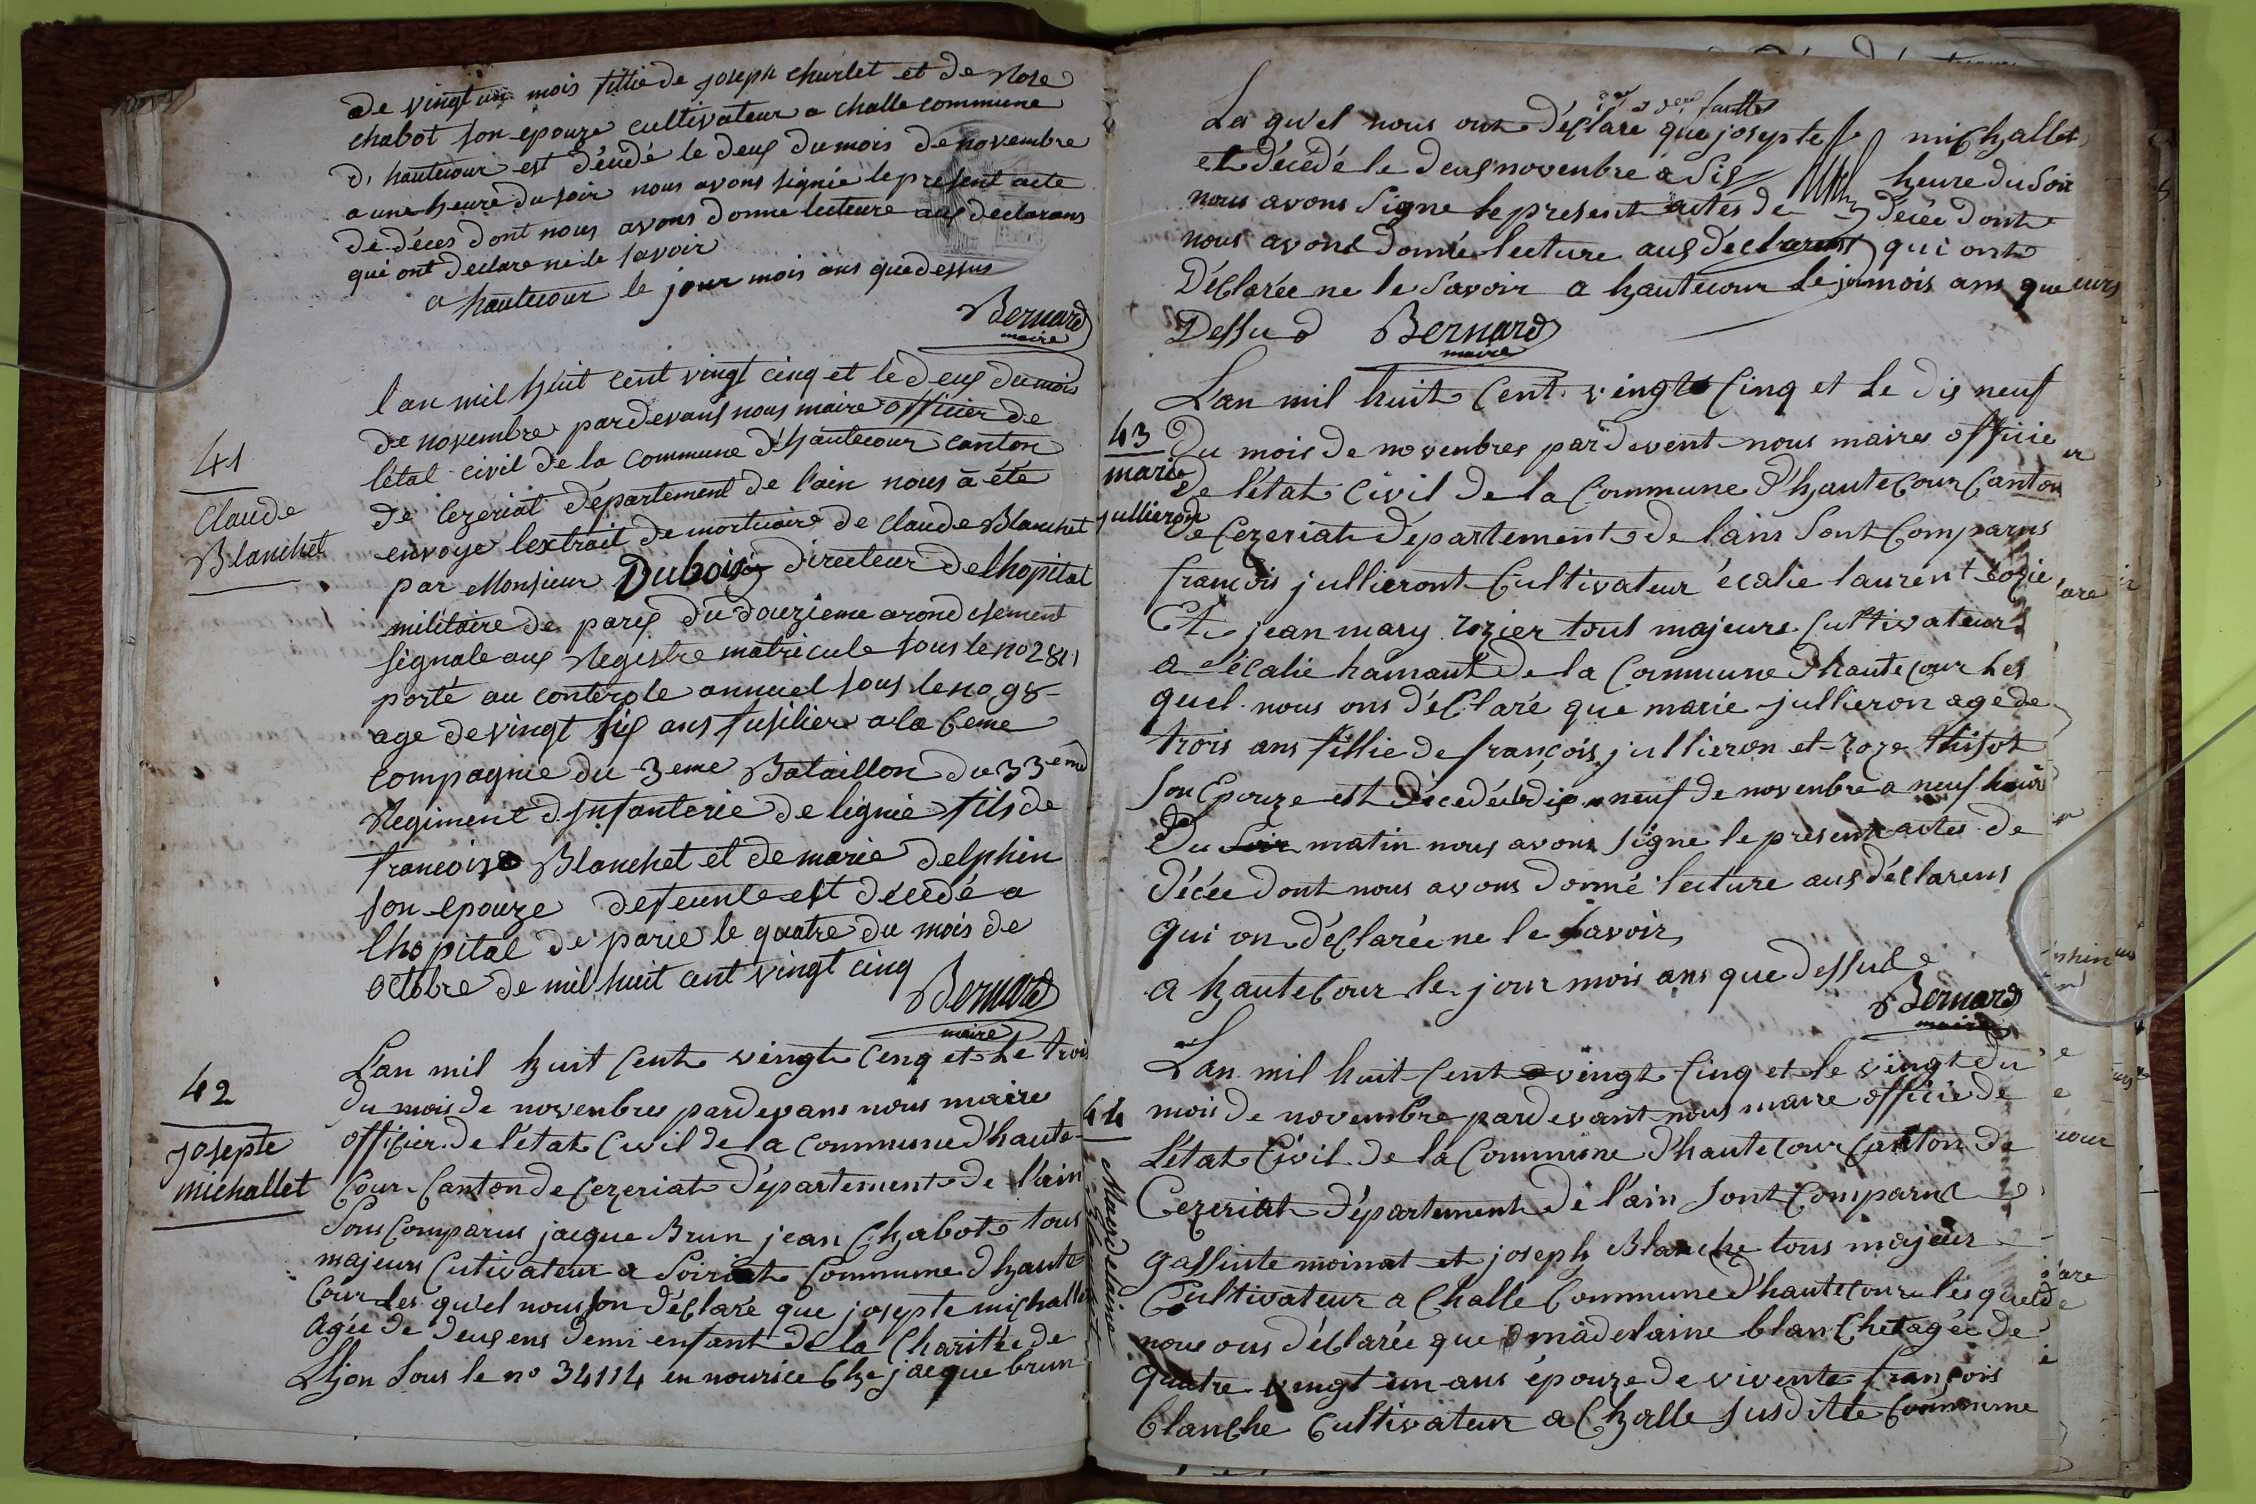 de vingt un mois fillie de joseph churlet et de Rose
chabot son epouze cultivateur a challe commune
d'hautecour est décédé le deux du mois de novembre
a une heure du soir nous avons signie le present acte
de déces dont nous avons donne lecteure aux declarans
qui ont declare ne le savoir
a hautecour le jour mois ans que dessus
Bernard
maire
41
Claude
Blanchet
l an mil huit cent vingt cinq et le deux du mois
de novembre pardevans nous maire officier de
létal civil de la commune d'hautecour canton
de cezeriat département de l'ain nous à été
envoye lextrait de mortuaire de claude Blanchet
par Monsieur Dubois directeur de lhopital
militaire de paris du douzieme arondisement
signale aux Registre matricule sous le no 281
porté au conterole annuel sous le no 98
age de vingt six ans fusilier a la 6eme
compagnie du 3eme Bataillon du 33eme
Regiment d'infanterie de lignie fils de
francois Blanchet et de marie delphin
son epouze defeunte est décédé a
lhopital de parie le quatre du mois de
octobre de mil huit cent vingt cinq
Bernard
maire
42
josepte
michallet
L'an mil huit cent vingt cinq et le trois
du mois de novenbres pardevans nous maire
officier de l'état civil de la commune d'haute
cour canton de cezeriat département de l'ain
sont comparus jacque Brun jean chabot tous
majeurs cutivateur a soiriat commune d haute
cour les qu'el nous on déclaré que josepte michallet
agée de deux ens demi enfant de la charitée de
Lljon sous le no 34114 en nourice che jacque brun
La qu'el nous ont déclaré que josepte michallet
et décédé le deux novenbre a six heure du soir
nous avons signe le present actes de décée dont
nous avons donné lecture aux déclarent qui ont
déclarée ne le savoir a hautecour le jour mois ans que
dessus Bernard
maire
43
marie
jullieron
L'an mil huit cent vingt cinq et le dix neuf
du mois de novenbres par devent nous maires officier
de l'état civil de la commune d'hautecour canton
de cezeriat département de lains sont comparus
françois jullieront cultivateur écalie laurent rozie
et jean mary rozier tous majeurs cultivateur
a écalie hamant de la commune d'hautecour les
quel nous ons déclaré que marie jullieron age de
trois ans fillie de françois jullieron et roze thisot
son epouze est décedée le dix neuf de novenbre a neuf heure
du soir matin nous avons signe le present actes de
décée dont nous avons donné lecture aux déclarens
qui on déclarée ne le savoir
a hautecour le jour mois ans que dessus
Bernard
maire
44
Magdelaine
L'an mil huit cent vingt cinq et le vingt du
mois de novembre pardevant nous maire officie de
l'état civil de la commune d'hautecour canton de
cezeriat département de l'ain sont comparut
gassinte moinat et joseph Blanche tous majeur
cultivateur a challe commune d'hautecour les quel
nous ons déclarée que madelaine blanchet agée de
quatre vingt un ans épouze de vivente françois
blanche cultivateur a challe susditte commune